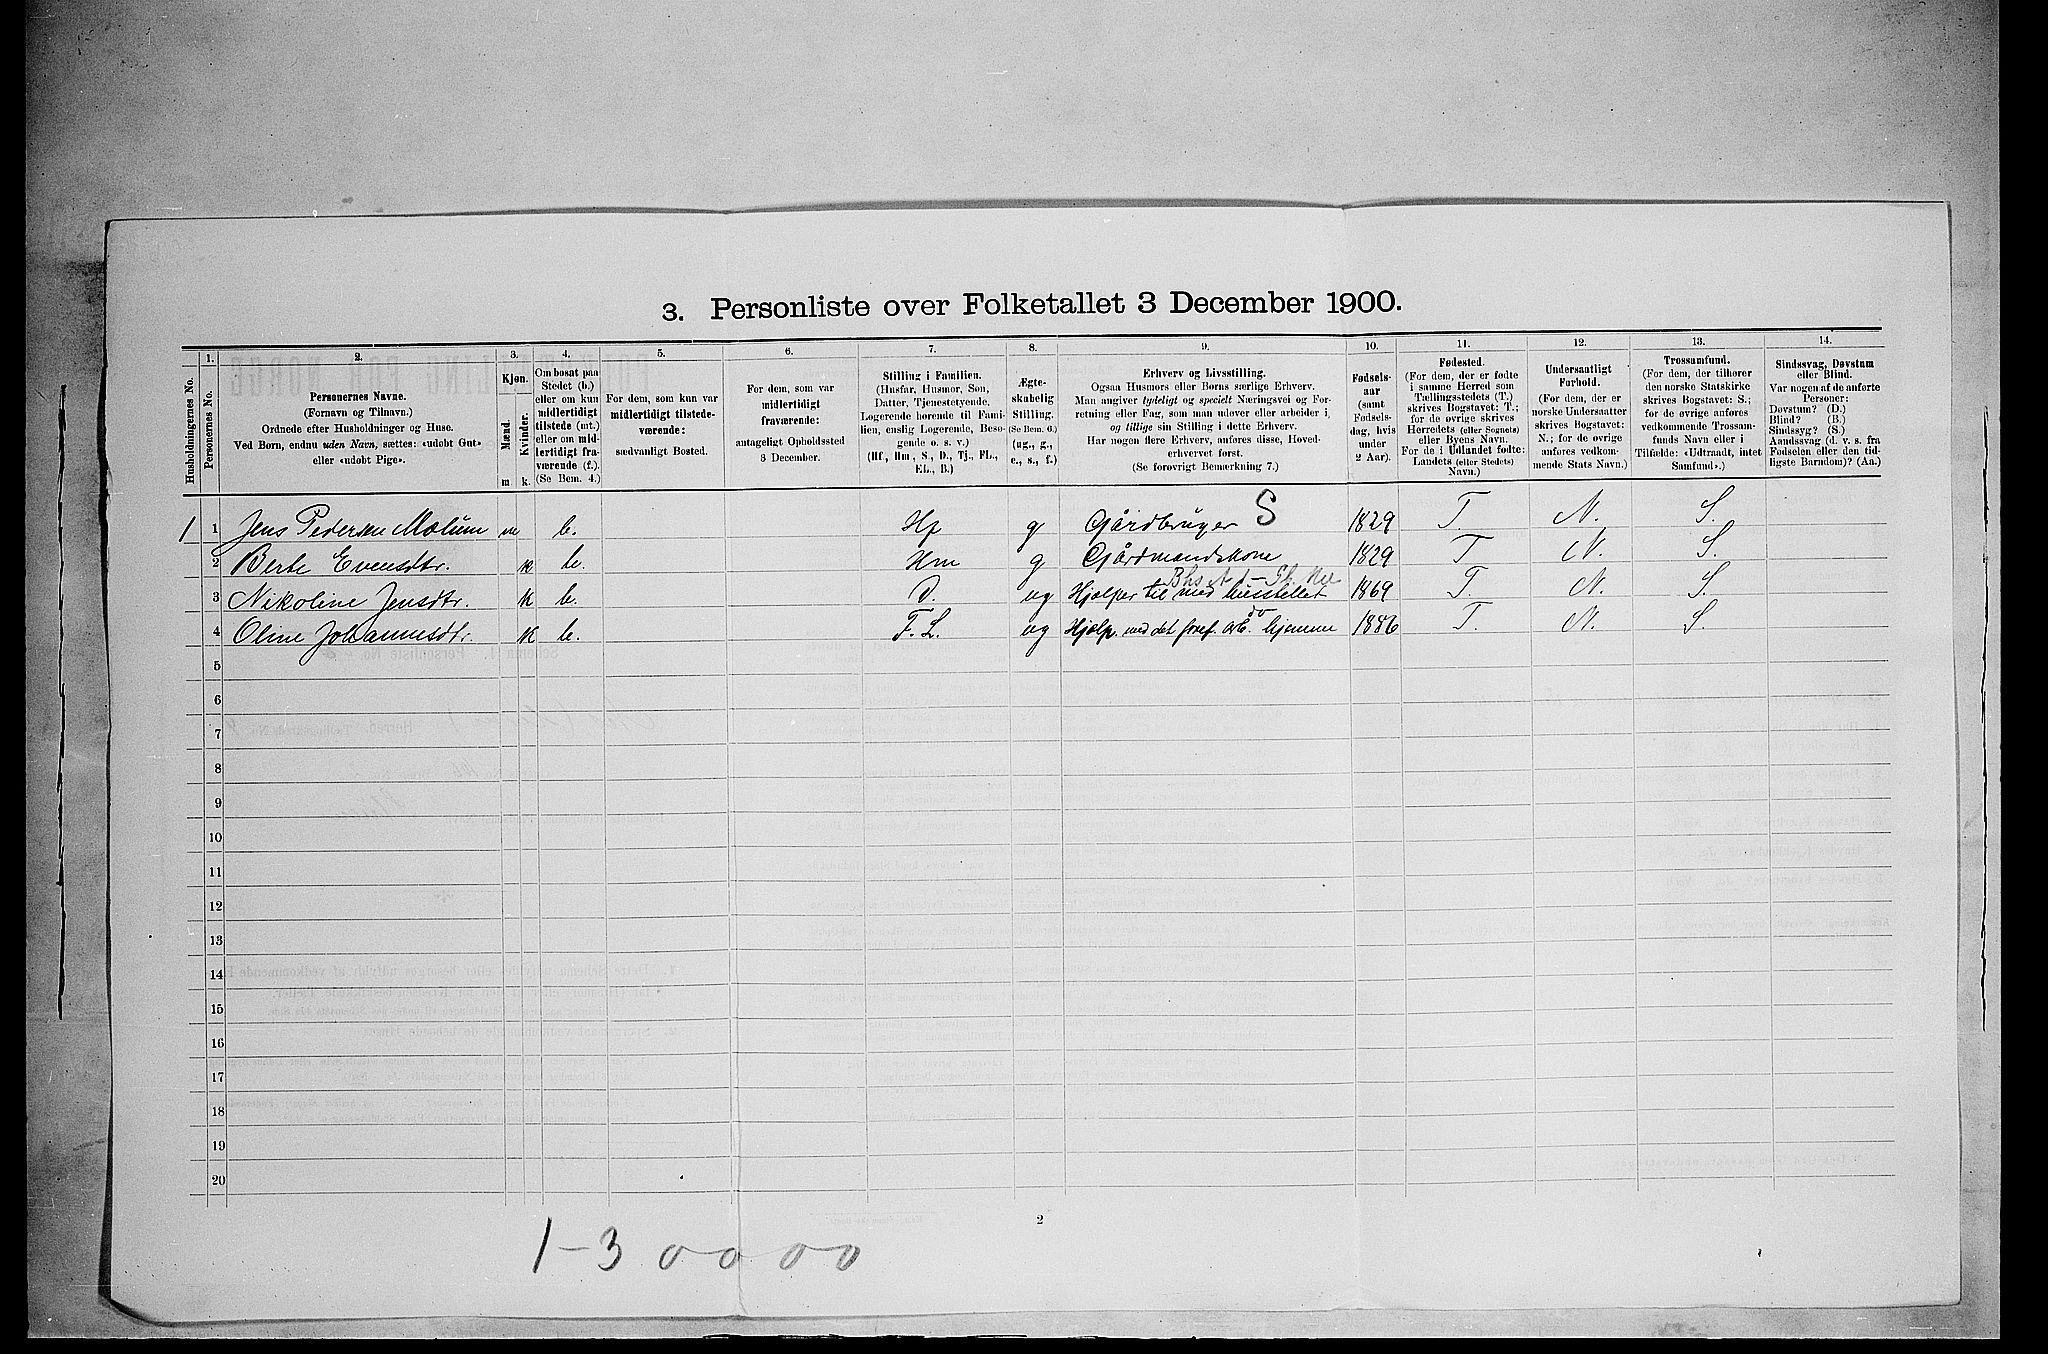 3. Personliste over Folketallet 3 December 1900.
1. 2. 3. 4. 5. 6. 7. 8. 9. 10. 11. 12. 13. 14.
Husholdningernes No.
Personernes No.
Personernes Navne.
(Fornavn og Tilnavn.)
Ordnede efter Husholdninger og Huse.
Ved Børn, endnu uden Navn, sættes: «udøbt Gut»
eller «udøbt Pige».
Kjøn.
Mænd.
Kvinder.
m. k.
Om bosat paa
Stedet (b.)
eller om kun
midlertidigt
tilstede (mt.)
eller om mid-
lertidigt fra-
værende (f.).
(Se Bem. 4.)
For dem, som kun var
midlertidigt tilstede-
værende:
sædvanligt Bosted.
For dem, som var
midlertidigt
fraværende:
antageligt Opholdssted
3 December.
Stilling i Familien.
(Husfar, Husmor, Søn,
Datter, Tjenestetyende,
Logerende hørende til Fami-
lien, enslig Logerende, Besø-
gende o. s. v.)
(Hf., Hm., S., D., Tj., FL.,
EL., B.)
Ægte-
skabelig
Stilling.
(Se Bem. 6.)
(ug., g.,
e., s., f.)
Erhverv og Livsstilling.
Ogsaa Husmors eller Børns særlige Erhverv.
Man angiver tydeligt og specielt Næringsvei og For-
retning eller Fag, som man udøver eller arbeider i,
og tillige sin Stilling i dette Erhverv.
Har nogen flere Erhverv, anføres disse, Hoved-
erhvervet først.
(Se forøvrigt Bemærkning 7.)
Fødsels-
aar
(samt
Fødsels-
dag, hvis
under
2 Aar).
Fødested.
(For dem, der er fødte
i samme Herred som
Tællingsstedets (T.)
skrives Bogstavet: T.;
for de øvrige skrives
Herredets (eller Sognets)
eller Byens Navn.
For de i Udlandet fødte:
Landets (eller Stedets)
Navn.)
Undersaatligt
Forhold.
(For dem, der er
norske Undersaatter
skrives Bogstavet:
N.; for de øvrige
anføres vedkom-
mende Stats Navn.)
Trossamfund.
(For dem, der tilhører
den norske Statskirke
skrives Bogstavet: S.;
for de øvrige anføres
vedkommende Trossam-
funds Navn eller i
Tilfælde: «Udtraadt, intet
Samfund».)
Sindssvag, Døvstum
eller Blind.
Var nogen af de anførte
Personer:
Døvstum? (D.)
Blind? (B.)
Sindssyg? (S.)
Aandssvag (d. v. s. fra
Fødselen eller den tid-
ligste Barndom)? (Aa.)
1 1 Jens Pedersen Mælum m b. Hf g Gårdbruger S 1829 T. N. S.
2 Berte Evensdtr. k b. Hm g Gårdmandskone 1829 T N. S.
3 Nikoline Jensdtr. k b. D. ug Hjælper til med husstellet 1869 T. N. S.
4 Oline Johannesdtr. k b. F.L. ug Hjælp. med det foref. arb. hjemme 1886 T. N. S.
do
5
6
7
8
9
10
11
12
13
14
15
16
17
18
19
20
2
1-3 0 0 0 0